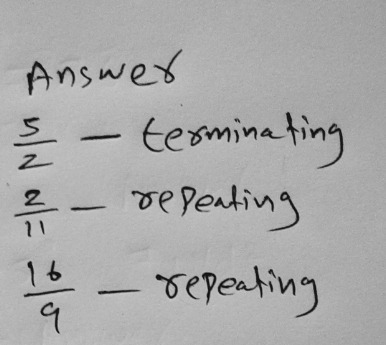 Answer
5/2 — terminating
2/11 — repeating
16/9 — repeating